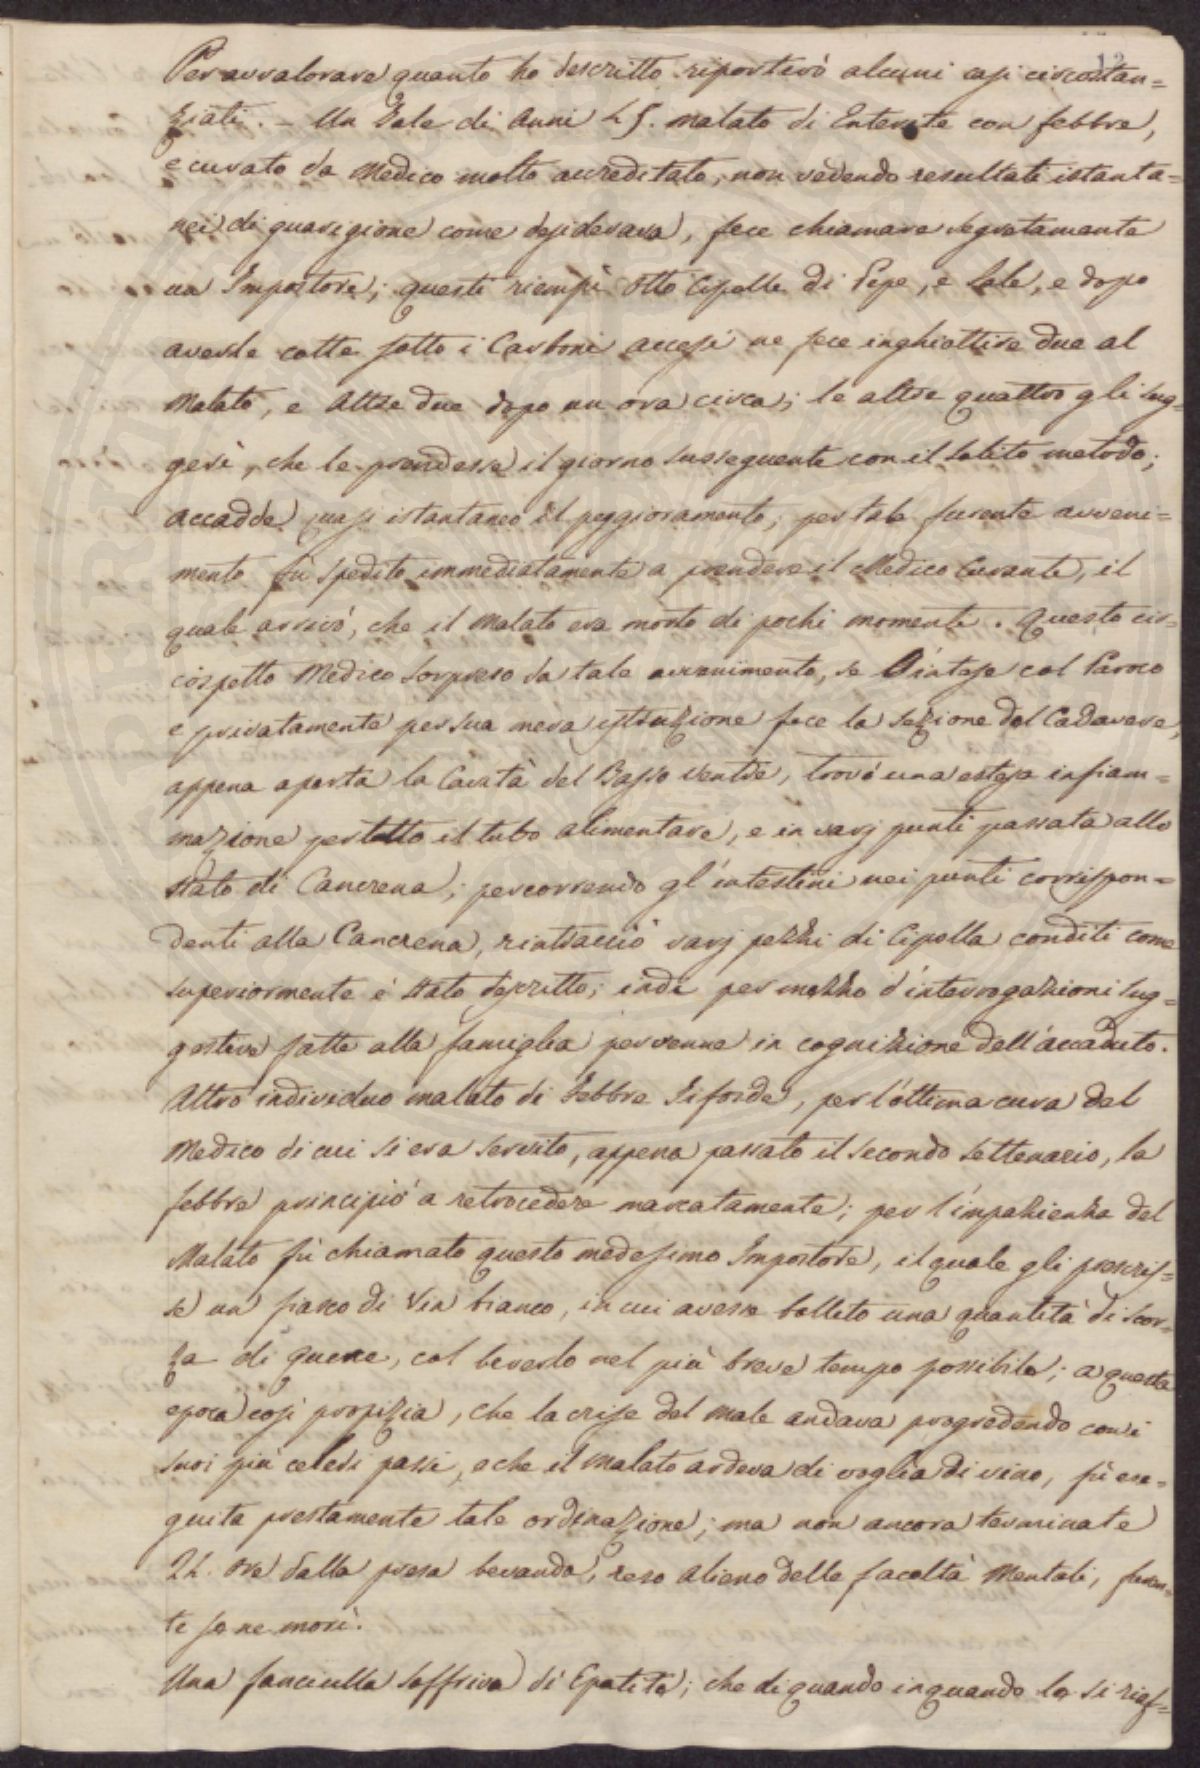 12
Per avvalorare quanto ho descritto riporterò alcuni casi circostan=
ziati. – Un Tale di Anni 45. malato di Enterite con febbre,
e curato da Medico molto accreditato, non vedendo resultati istanta=
nei di guarigione come desiderava, fece chiamare segretamente
un Impostore; questi riempì otto Cipolle di Pepe, e Sale, e dopo
averle cotte sotto i Carboni accesi ne fece inghiottire due al
Malato, e altre due dopo un ora circa; le altre quattro gli sug=
gerì, che le prendesse il giorno susseguente con il solito metodo;
accadde quasi istantaneo il peggioramento; per tale furente avveni=
mento fù spedito immediatamente a prendere il Medico Curante, il
quale arrivò, che il Malato era morto di pochi momenti. Questo cir=
cospetto Medico sorpreso da tale avvenimento, se l'intese col Paroco
e privatamente per sua mera istruzione fece la sezione del Cadavere,
appena aperta la Cavità del Basso Ventre, trovò una estesa infiam=
mazione per tutto il tubo alimentare, e in varj punti passata allo
stato di Cancrena; percorrendo gl'intestini nei punti corrispon=
denti alla Cancrena, rintracciò varj pezzi di Cipolla conditi come
superiormente è stato descritto; indi per mezzo d'interrogazioni sug=
gestive fatte alla famiglia pervenne in cognizione dell'accaduto.
Altro individuo malato di Febbre Tifoide, per l'ottima cura del
Medico di cui si era servito, appena passato il secondo settenario, la
febbre principiò a retrocedere marcatamente; per l'impazienza del
Malato fù chiamato questo medesimo Impostore, il quale gli prescris=
se un fiasco di Vin bianco, in cui avesse bollito una quantità di scor=
za di querce, col beverlo nel più breve tempo possibile; a questa
epoca così propizia, che la crise del male andava progredendo con i
suoi più celeri passi, e che il Malato ardeva di voglia di vino, fù ese=
guita prestamente tale ordinazione; ma non ancora terminate
24. ore dalla presa bevanda, reso alieno delle facoltà Mentali, furen=
te se ne morì.
Una fanciulla soffriva di Epatite; che di quando in quando le si riaf=